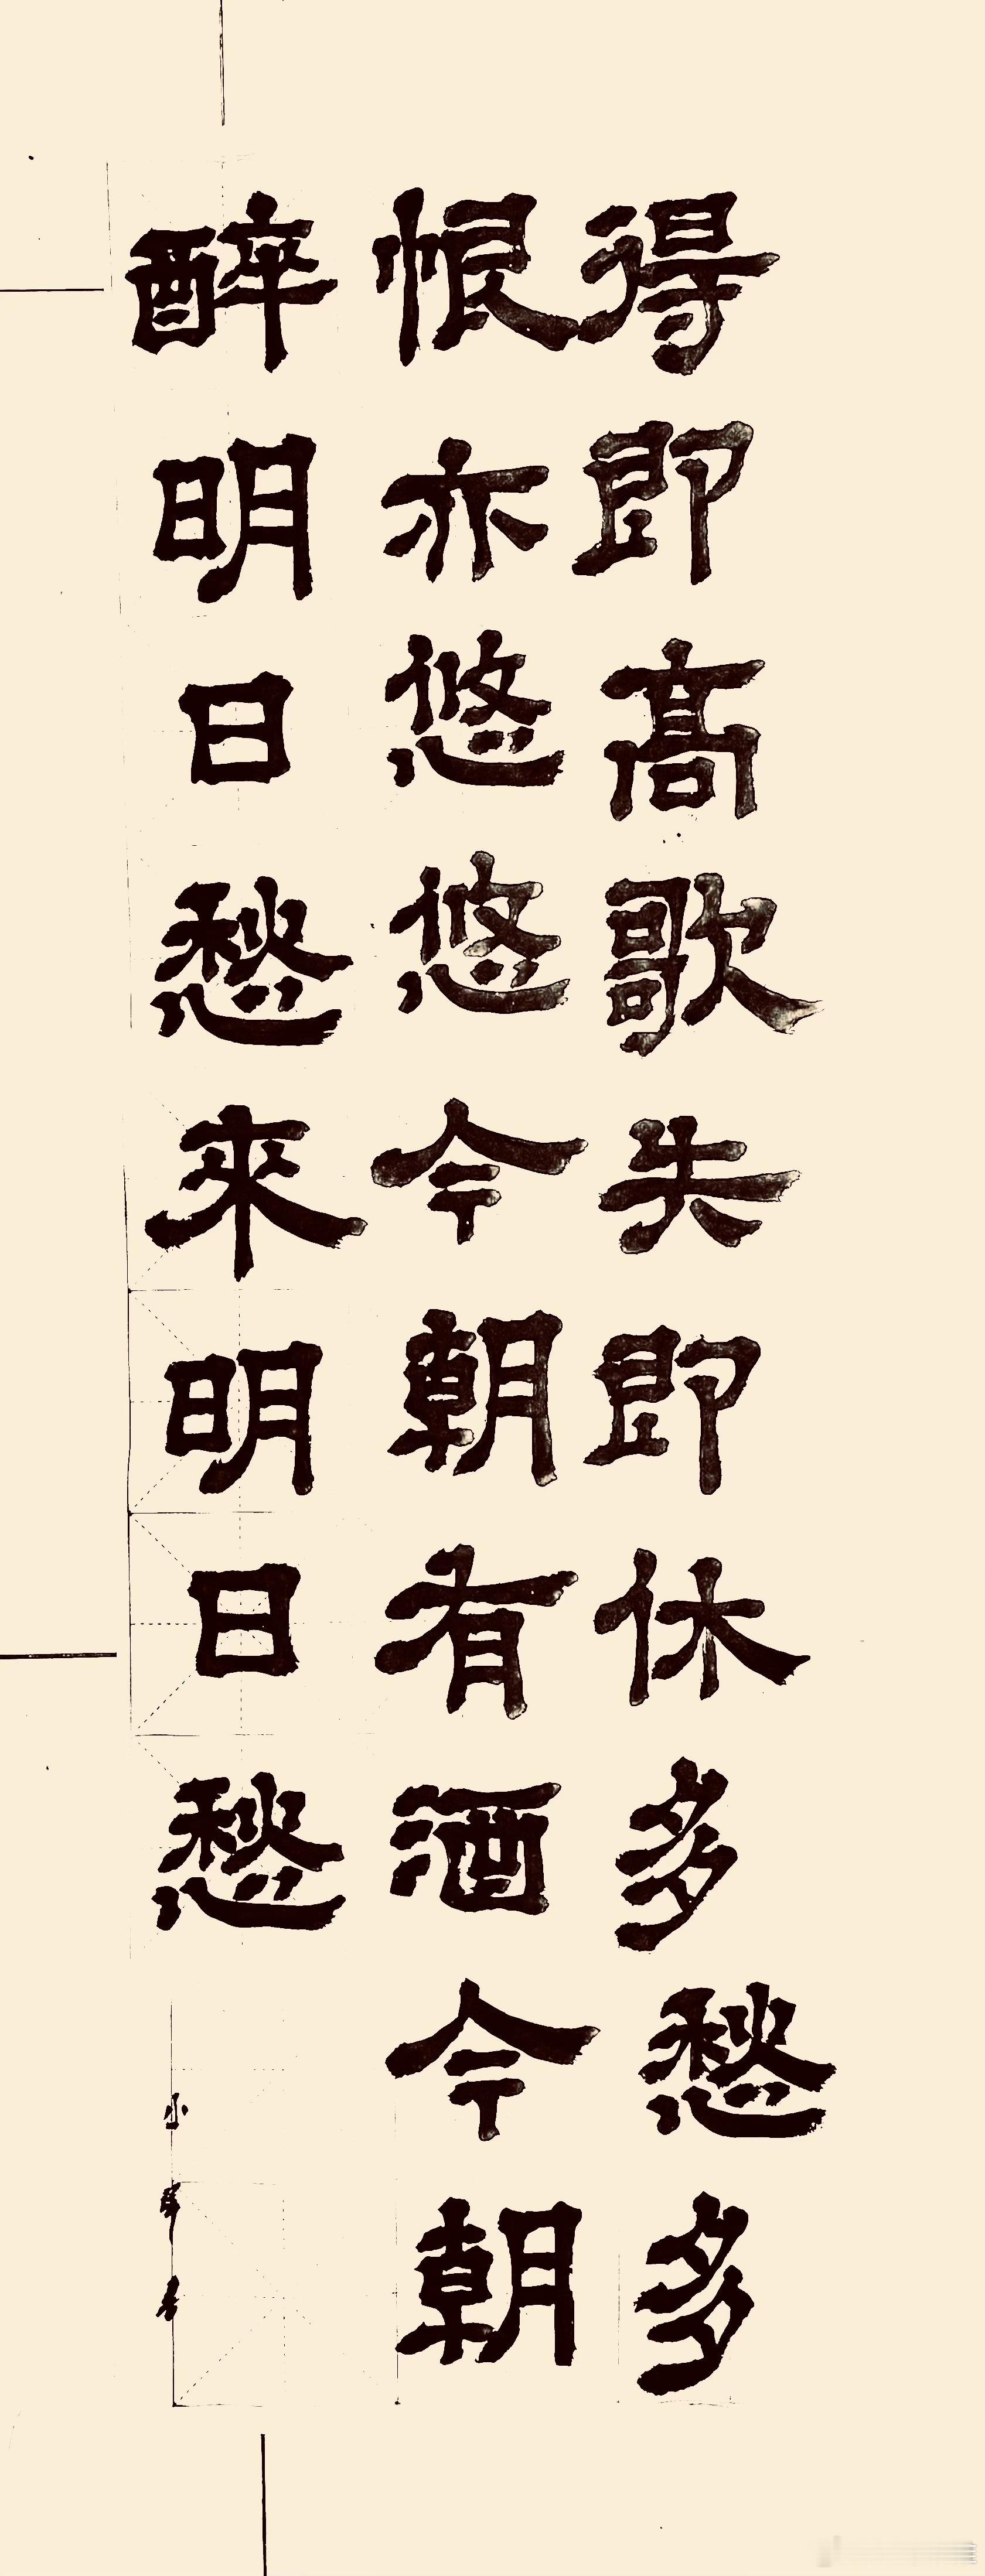 得即高歌失即休多愁多
恨亦悠悠今朝有酒今朝
醉明日愁來明日愁